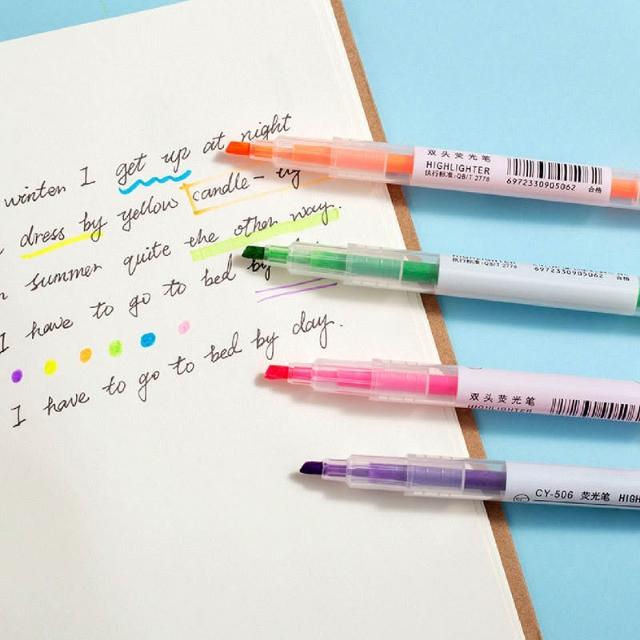 winter I get up at night
dress by yellow candle-
summer quite the other way.
I have to go to bed by
I have to go to bed by day.
双头荧光笔
HIGHLIGHTER
执行标准:QB/T 2778
6972330905062 合格
执行标准:QB/T 2778
6972330905062 合格
双头荧光笔
HIGHLIGHTER
CY-506 荧光笔 HIGH